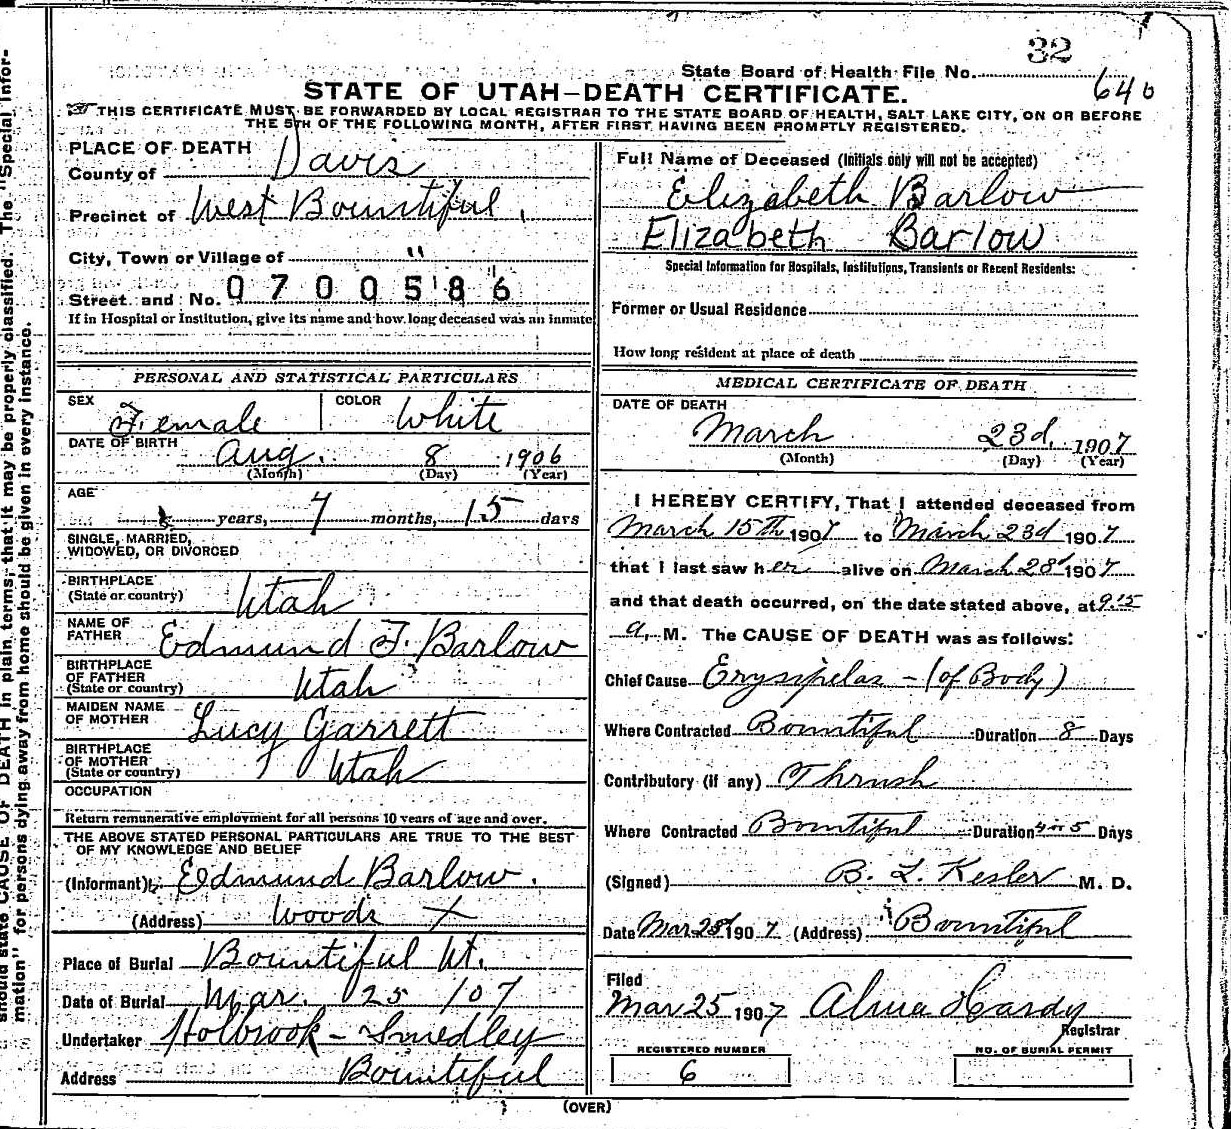 32
State Board of Health File No. 640
STATE OF UTAH–DEATH CERTIFICATE.
THIS CERTIFICATE MUST BE FORWARDED BY LOCAL REGISTRAR TO THE STATE BOARD OF HEALTH, SALT LAKE CITY, ON OR BEFORE
THE 5TH OF THE FOLLOWING MONTH, AFTER FIRST HAVING BEEN PROMPTLY REGISTERED.
PLACE OF DEATH
County of Davis
Precinct of West Bountiful.
City, Town or Village of "
Street and No. 0700586
If in Hospital or Institution, give its name and how long deceased was an inmate
PERSONAL AND STATISTICAL PARTICULARS
SEX Female COLOR White
DATE OF BIRTH Aug. 8 1906
(Month) (Day) (Year)
AGE
years, 7 months, 15 days
SINGLE, MARRIED,
WIDOWED, OR DIVORCED
BIRTHPLACE
(State or country) Utah
NAME OF
FATHER Edmund F. Barlow
BIRTHPLACE
OF FATHER
(State or country) Utah
MAIDEN NAME
OF MOTHER Lucy Garrett
BIRTHPLACE
OF MOTHER
(State or country) Utah
OCCUPATION
Return remunerative employment for all persons 10 years of age and over.
THE ABOVE STATED PERSONAL PARTICULARS ARE TRUE TO THE BEST
OF MY KNOWLEDGE AND BELIEF
(Informant) Edmund Barlow.
(Address) Woods X
Place of Burial Bountiful Ut.
Date of Burial Mar. 25 /07
Undertaker Holbrook - Smedley
Address Bountiful
Full Name of Deceased (Initials only will not be accepted)
Elizabeth Barlow
Elizabeth Barlow
Special Information for Hospitals, Institutions, Transients or Recent Residents:
Former or Usual Residence
How long resident at place of death
MEDICAL CERTIFICATE OF DEATH
DATE OF DEATH
March 23d. 1907
(Month) (Day) (Year)
I HEREBY CERTIFY, That I attended deceased from
March 15th 1907 to March 23d 1907
that I last saw her alive on March 23d 1907
and that death occurred, on the date stated above, at 9.15
a. M. The CAUSE OF DEATH was as follows:
Chief Cause Erysipelas - (of Body)
Where Contracted Bountiful Duration 8 Days
Contributory (if any) Thrush
Where Contracted Bountiful Duration 4 or 5 Days
(Signed) B. L. Kesler M. D.
Date Mar 23d 1907 (Address) Bountiful
Filed
Mar 25 1907 Alma Hardy
Registrar
REGISTERED NUMBER NO. OF BURIAL PERMIT
6
(OVER)
should state CAUSE OF DEATH in plain terms, that it may be properly classified. The "Special Infor-
mation" for persons dying away from home should be given in every instance.